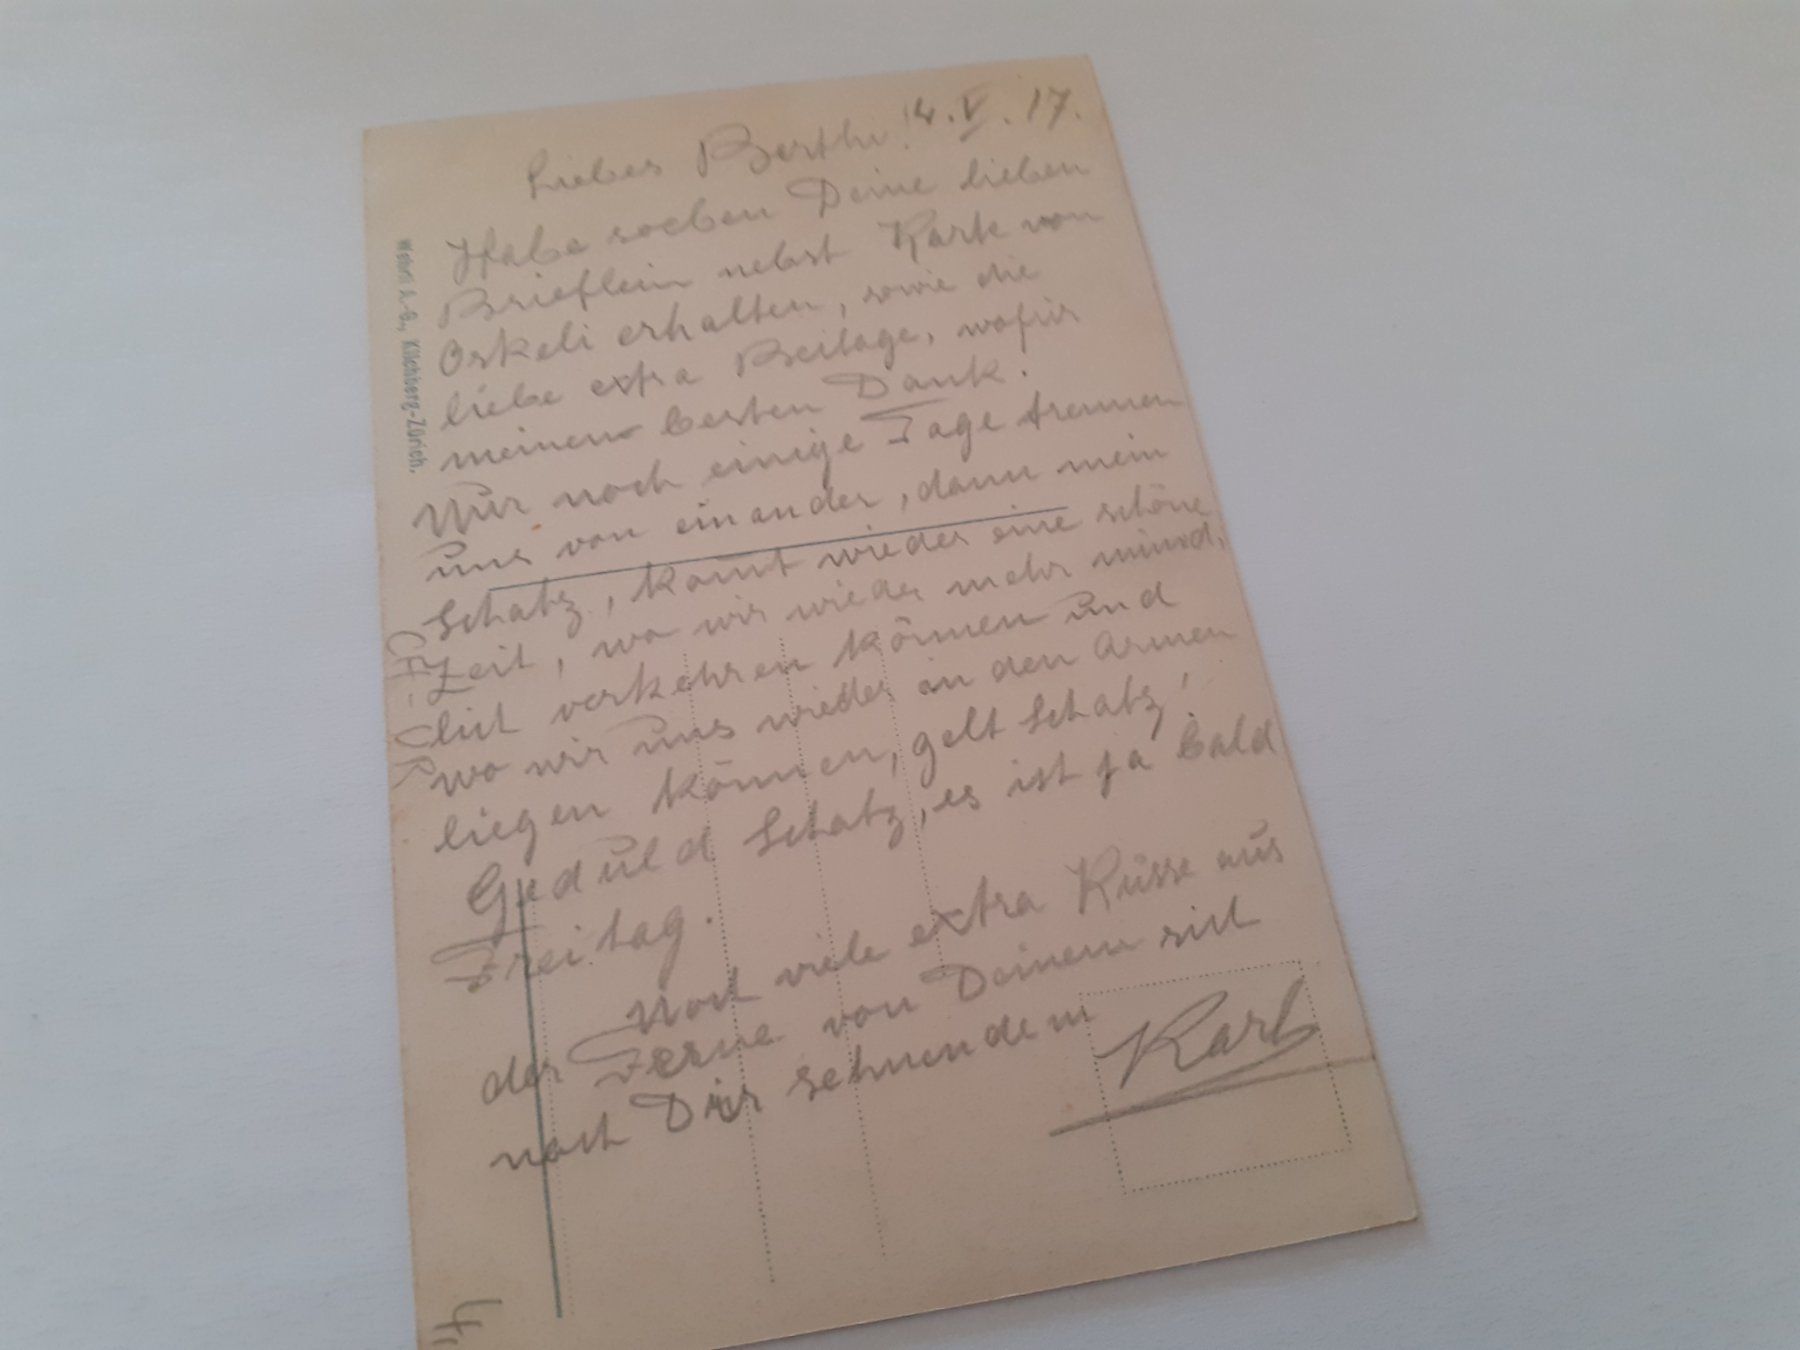 14.V.17.
Liebes Berthi!
Habe soeben Deine lieben
Brieflein nebst Karte von
Oskeli erhalten, sowie die
liebe extra Beilage, wofür
meinen besten Dank.
Nur noch einige Tage trennen
uns von einander, dann mein
Schatz, komt wieder eine schöne
Zeit, wo wir wieder mehr münd,
lich verkehren können und
wo wir uns wieder in den Armen
liegen können, gelt Schatz!
Geduld Schatz, es ist ja bald
Freitag.
Noch viele extra Küsse aus
der Ferne von Deinem sich
nach Dir sehnendem
Karl
Wehrli A.-G., Kilchberg-Zürich.